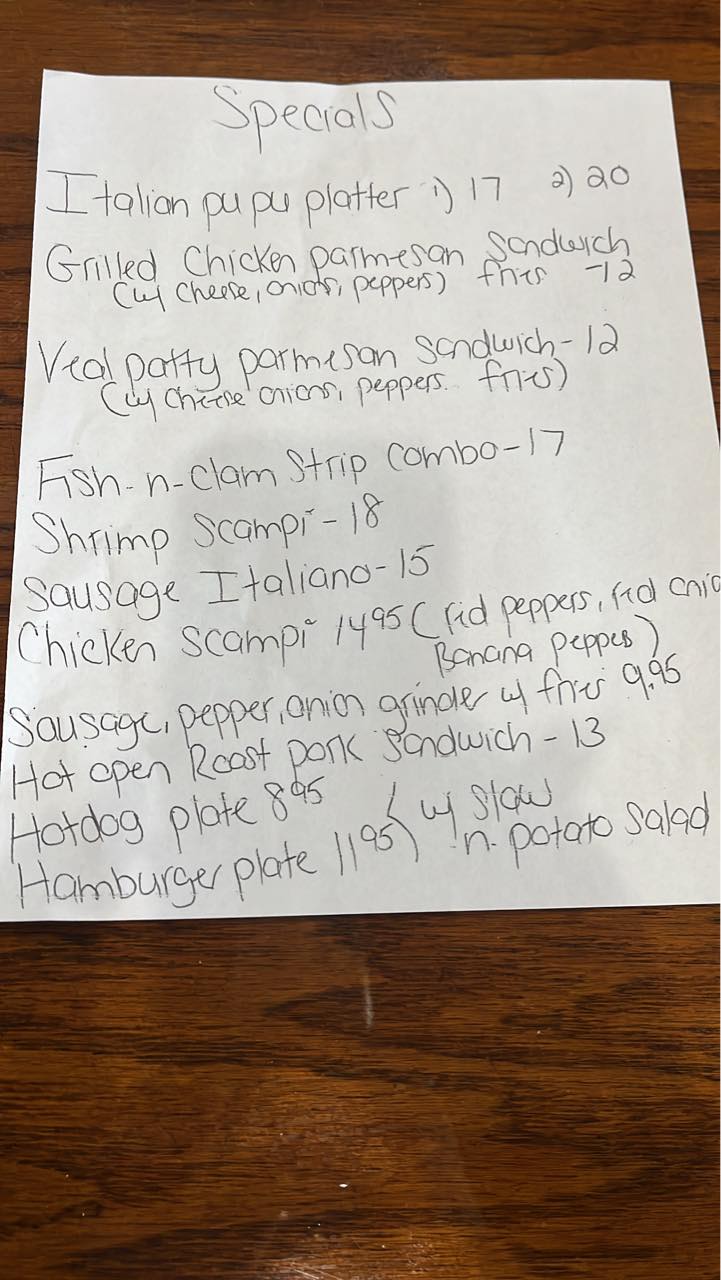 Specials
Italian pu pu platter 1) 17 2) 20
Grilled Chicken parmesan Sandwich
(w/ cheese, onions, peppers) fries -12
Veal patty parmesan Sandwich - 12
(w/ cheese onions, peppers.. fries)
Fish-n-clam Strip combo-17
Shrimp Scampi - 18
Sausage Italiano-15
Chicken Scampi 1495 (red peppers, red onio
Banana peppers)
Sausage, pepper, onion grinder w/ fries 9.95
Hot open Roast pork Sandwich - 13
Hotdog plate 895 ( w/ Slaw
Hamburger plate 1195 ) n. potato Salad